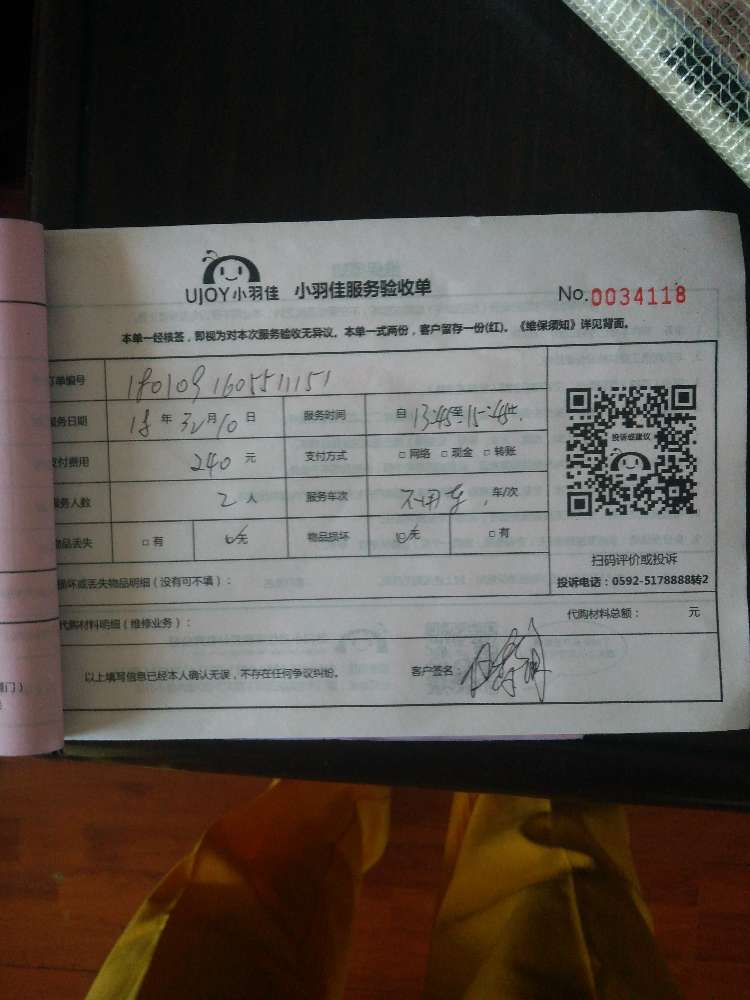 UJOY小羽佳 小羽佳服务验收单 No.0034118
本单一经核签，即视为对本次服务验收无异议。本单一式两份，客户留存一份(红)。《维保须知》详见背面。
订单编号 1801091605511151
服务日期 18 年 月10 日 服务时间 自 13:45至15:45止
支付费用 240 元 支付方式 □ 网络 □ 现金 □ 转账
服务人数 2 人 服务车次 不用车 车/次
物品丢失 □ 有 □无 物品损坏 □无 □ 有
投诉或建议
扫码评价或投诉
投诉电话：0592-5178888转2
损坏或丢失物品明细（没有可不填）：
代购材料明细（维修业务）： 代购材料总额： 元
以上填写信息已经本人确认无误，不存在任何争议纠纷。 客户签名：
门）